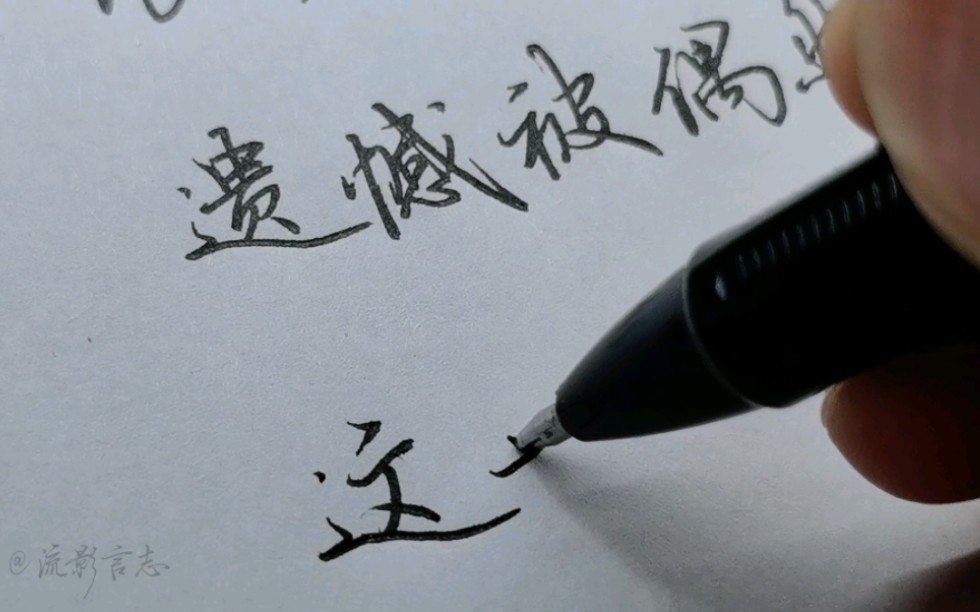 遗憾被偶
@流影言志